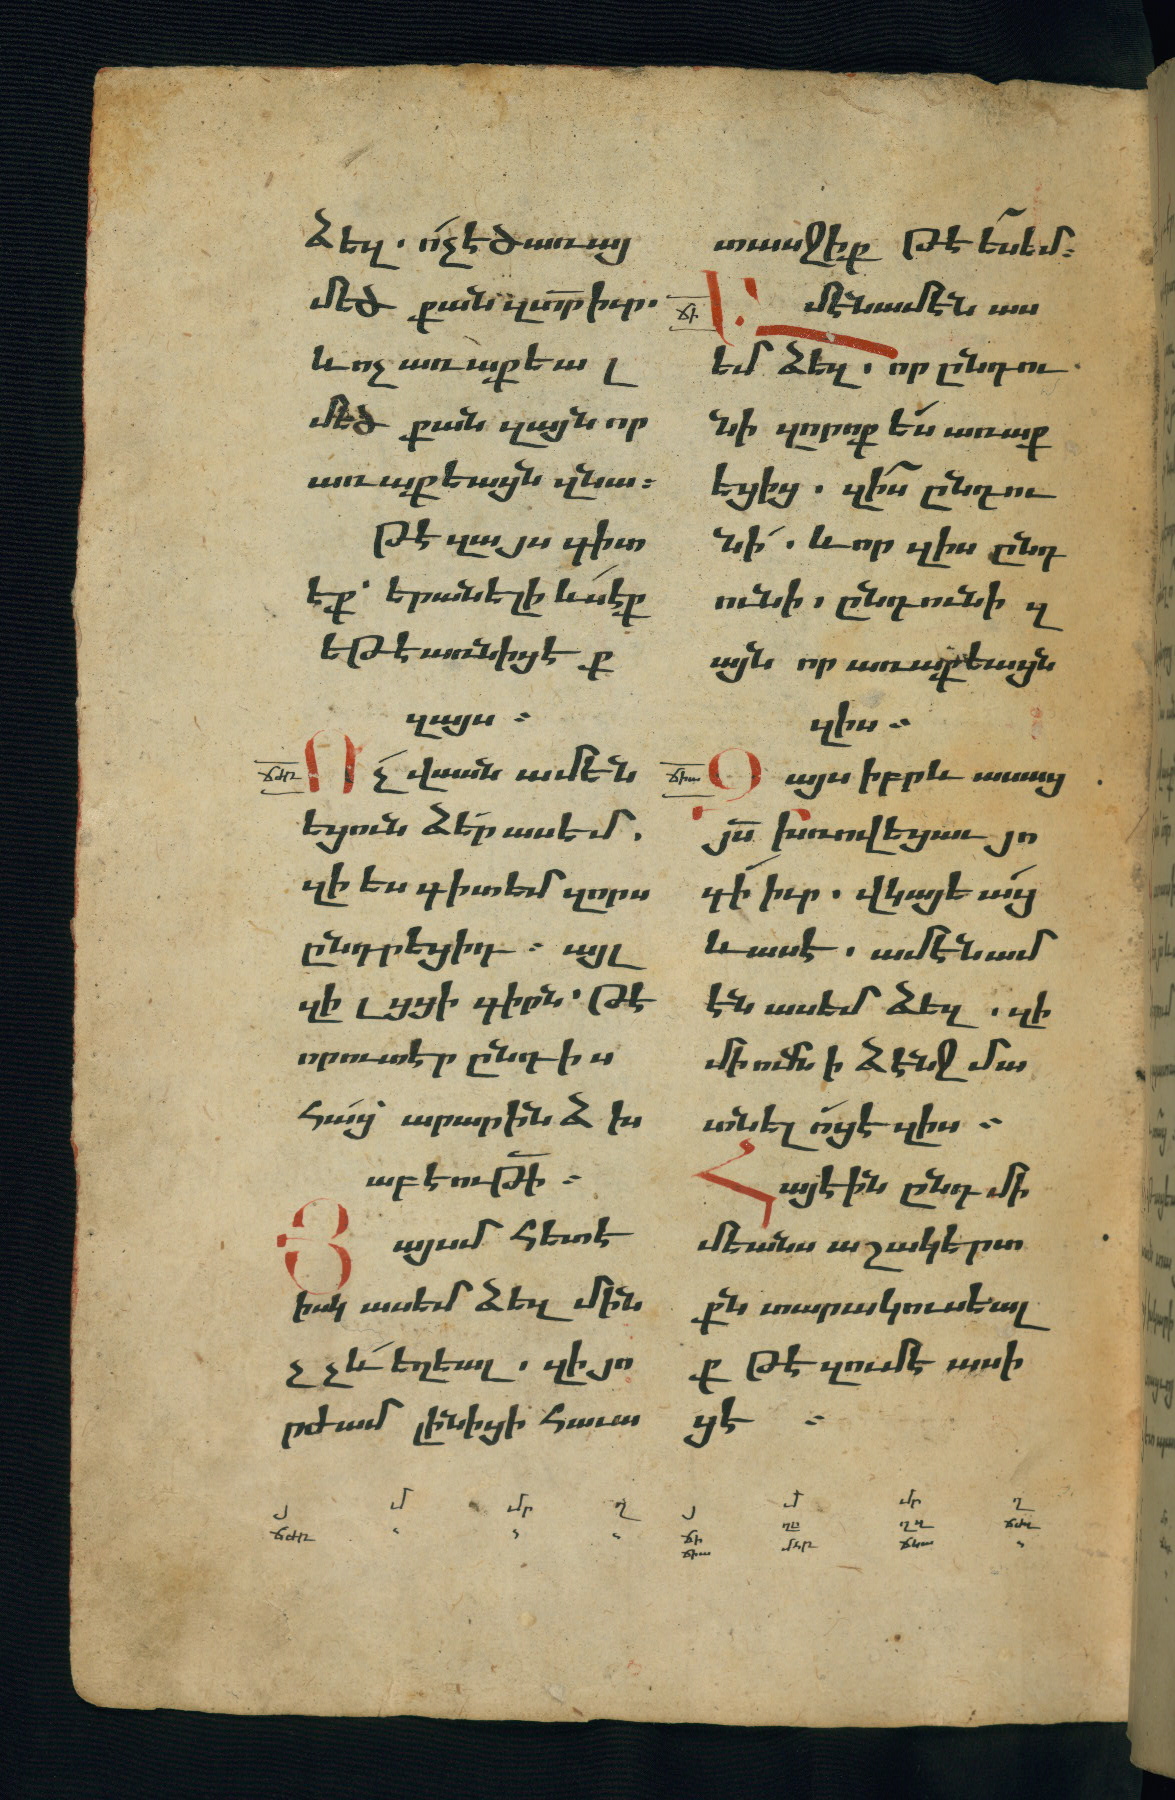 ձեզ. ո՛չ է ծառայ
մեծ քան զտ̅ր իւր.
և ոչ առաքեալ
մեծ քան զայն որ
առաքեացն զնա։
Թէ զայս գիտ
էք՝ երանելի ևս էք
եթէ առնիցէք
զայս։
ՃԺԹ Ոչ վասն ամէն
եցուն ձեր ասեմ.
զի ես գիտեմ զորս
ընտրեցիդ։ այլ
զի լցցի գիրն՝ թէ
որ ուտէր ընդ իս
հաց՝ արար ինձ խ
աբէութի̅։
Յայսմ հետէ
իսկ ասեմ ձեզ մին
չ չև եղեալ. զի յո
րժամ լինիցի հաւա
տասջիք թէ ես եմ։
ՃԻ Ամէն ամէն աս
եմ ձեզ. որ ընդու
նի զոր ոք ես առաք
եցից. զիս ընդու
նի. և որ զիս ընդ
ունի. ընդունի զ
այն որ առաքեացն
զիս։
ՃԻԱ Զայս իբրև ասաց
յս̅ խռովեցաւ յո
գի իւր. վկայեաց
և ասէ. ամէն ամ
էն ասեմ ձեզ. զի
մի ոմն ի ձէնջ մա
տնելոց է զիս։
Հայէին ընդ մի
մեանս աշակերտ
քն տարակուսեալ
ք թէ զումէ ասի
ցէ։
Յ Մ Մր Ղ
ՃԺԹ
Յ Մ Մր Ղ
ՃԻ
ՃԻԱ